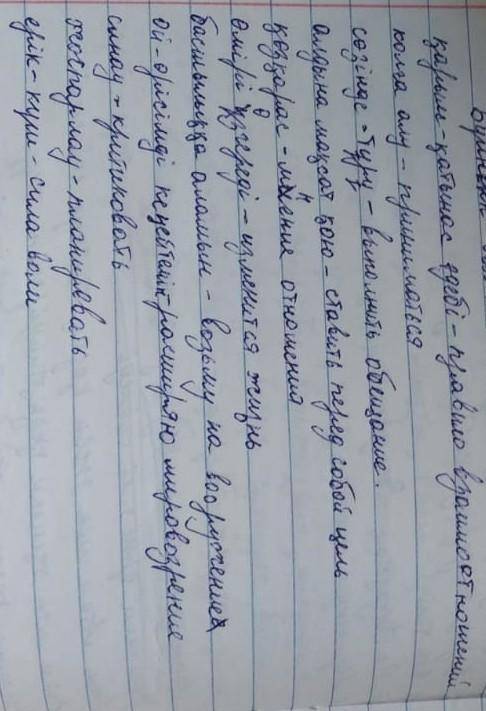 қарым-қатынас әдебі - правило взаимоотношений
қолға алу - приниматься
сөзінде тұру - выполнить обещание.
алдына мақсат қою - ставить перед собой цель
көзқарас - мнение отношения
өмірі өзгереді - изменится жизнь
басшылыққа аламын - возьму на вооружение
ой-өрісімді кеңейтемін расширяю мировозрение
сынау - критиковать
жоспарлау - планировать
ерік-күш - сила воли